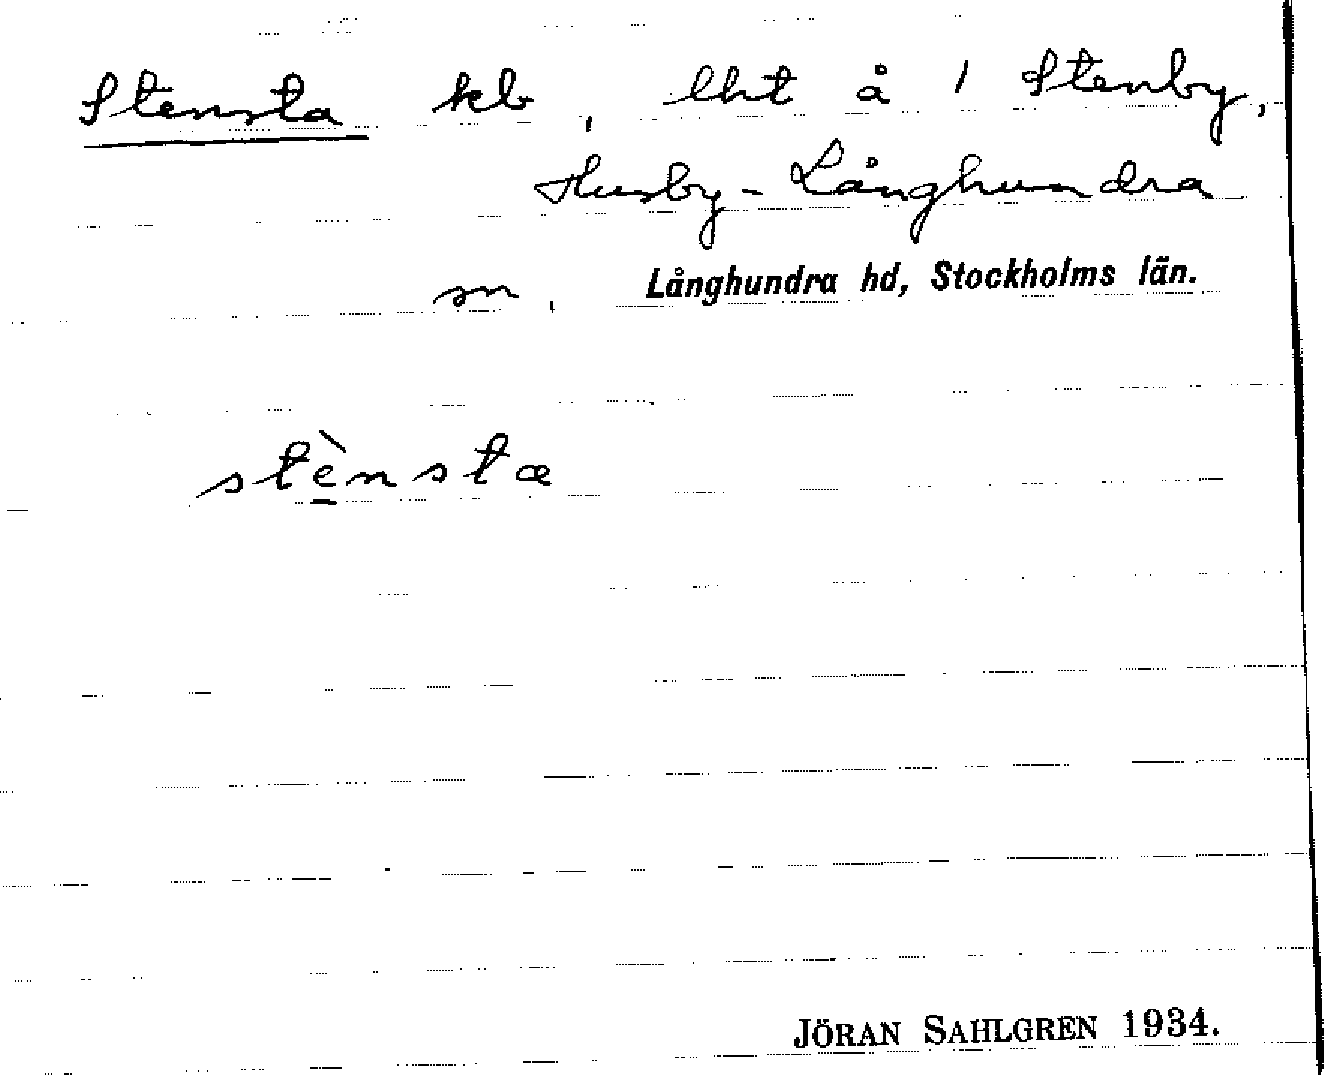 Stensta kb, lht å 1 Stenby,
Husby-Långhundra
sn, Långhundra hd, Stockholms län.
stè̱nsta
JÖRAN SAHLGREN 1934.